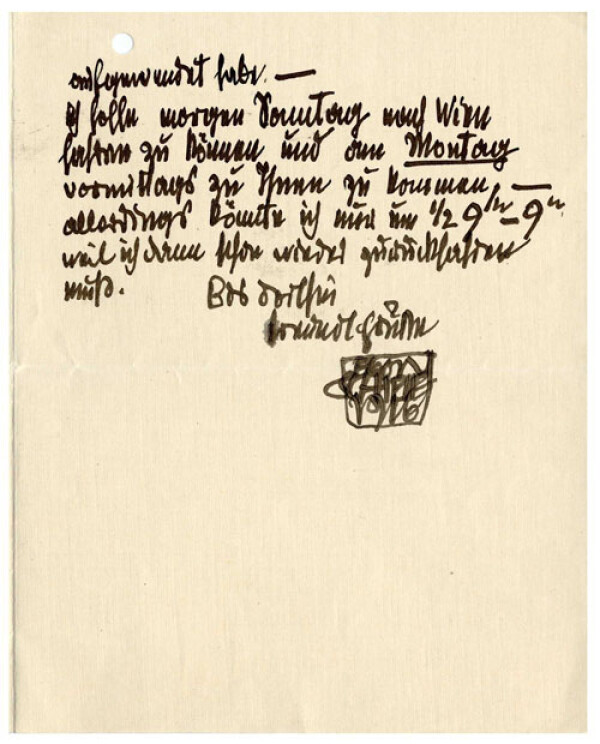 aufgewendet habe. —
ich hoffe morgen Sonntag nach Wien
fahren zu können und am Montag
vormittags zu Ihnen zu kommen, —
allerdings könnte ich nur um 1/2 9 h – 9 h
weil ich dann schon wieder zurückfahren
muß. Bis dorthin
freundl. Grüße
EGON
SCHIELE
1916